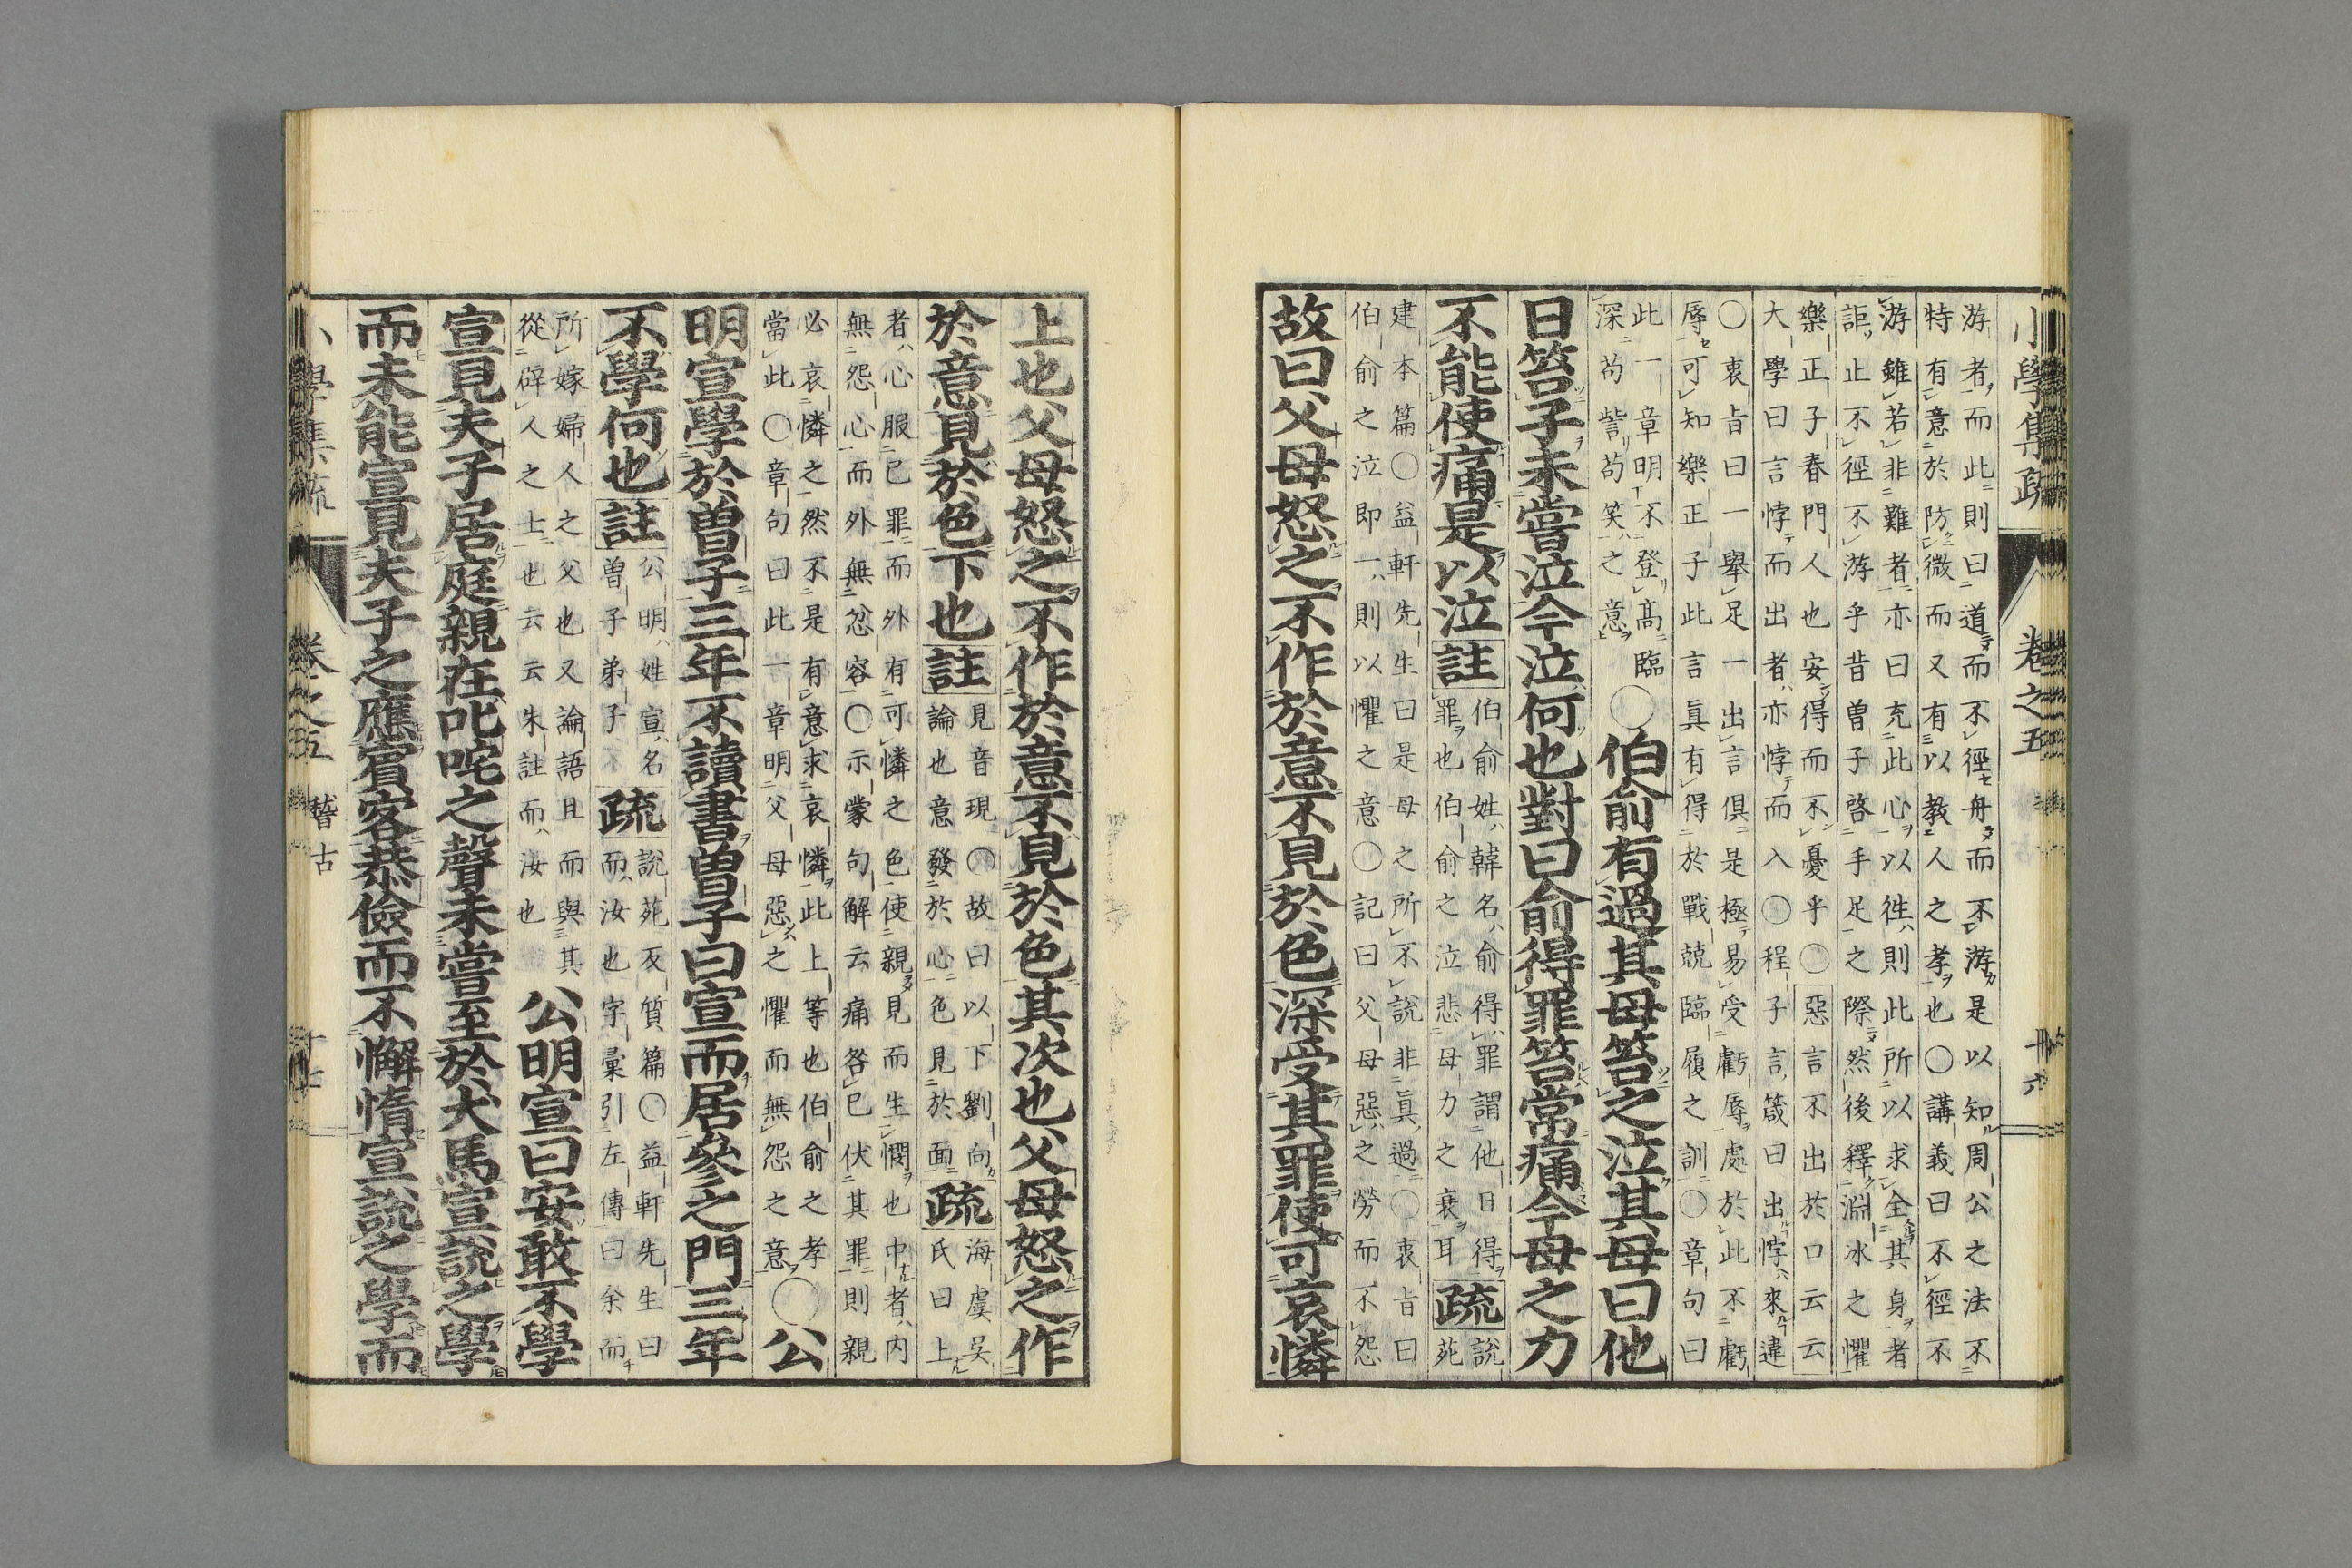 小學集疏
卷之五
游者而此則曰道而不徑舟而不游是以知周公之法不
特有意於防微而又有以教人之孝也〇講義曰不徑不
游雖若非難者亦曰充此心以徃則此所以求全其身者
詎止不徑不游乎昔曽子啓手足之際然後釋淵冰之懼
樂正子春門人也安得而不憂乎〇惡言不出於口云云
大學曰言悖而出者亦悖而入〇程子言箴曰出悖來違
〇衷旨曰一舉足一出言俱是極易受虧辱處於此不虧
辱可知樂正子此言眞有得於戰兢臨履之訓〇章句曰
此一章明不登高臨
深苟訾苟笑之意
〇伯俞有過其母笞之泣其母曰他
日笞子未嘗泣今泣何也對曰俞得罪笞常痛今母之力
不能使痛是以泣註
伯俞姓韓名俞得罪謂他日得
罪也伯俞之泣悲母力之衰耳
疏
說
苑
建本篇〇益軒先生曰是母之所不說非眞過〇衷旨曰
伯俞之泣即一則以懼之意〇記曰父母惡之勞而不怨
故曰父母怒之不作於意不見於色深受其罪使可哀憐
上也父母怒之不作於意不見於色其次也父母怒之作
於意見於色下也註
見音現〇故曰以下劉向
論也意發於心色見於面
疏
海虞吳
氏曰上
者心服已罪而外有可憐之色使親見而生憫也中者內
無怨心而外無忿容〇示蒙句解云痛咎已伏其罪則親
必哀憐之然不是有意求哀憐此上等也伯俞之孝
當此〇章句曰此一章明父母惡之懼而無怨之意
〇公
明宣學於曽子三年不讀書曽子曰宣而居參之門三年
不學何也註
公明姓宣名
曽子弟子
疏
說苑反質篇〇益軒先生曰
而汝也字彙引左傳曰余而
所嫁婦人之父也又論語且而與其
從辟人之士也云云朱註而汝也
公明宣曰安敢不學
宣見夫子居庭親在叱咤之聲未嘗至於犬馬宣說之學
而未能宣見夫子之應賓客恭儉而不懈惰宣說之學而
稽古